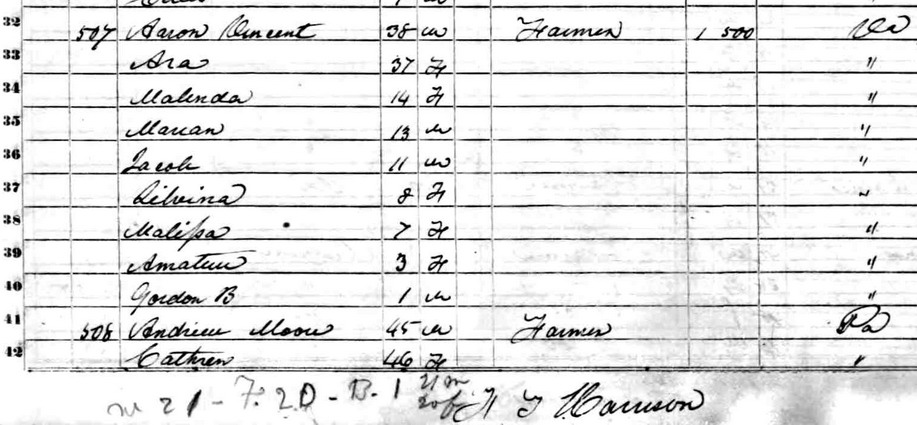 32
507 Aaron Vincent 38 m Farmer 1 500 Va
33 Ara 37 F "
34 Malinda 14 F "
35 Marian 13 m "
36 Jacob 11 m "
37 Silvina 8 F "
38 Malissa 7 F "
39 F 3 "
40 Gordon B 1 m "
41 508 Andrew Moore 45 m Farmer Pa
42 Cathren 46 F "
m 21 - F. 20 - B. 1 21 m 20 f
Harrison